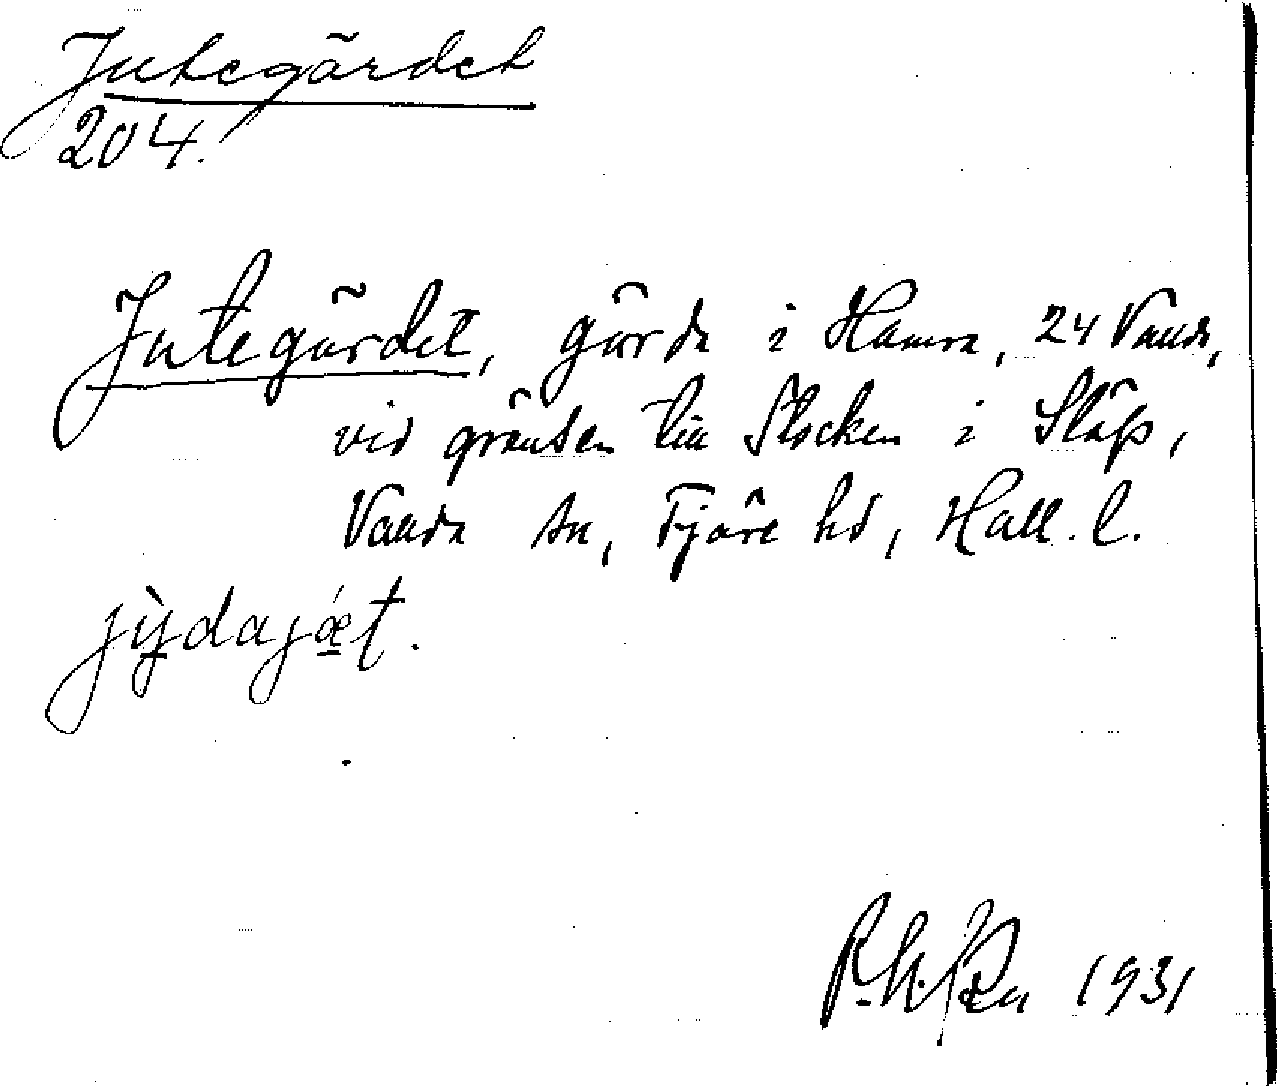 Jutegärdet
204.
Jutegärdet, gärde i Hamra, 24 Vands,
vid gränsen till Stocken i Släp,
Vanda sn, Fjäre hd, Hall. l.
jỳdajǽt.
1931